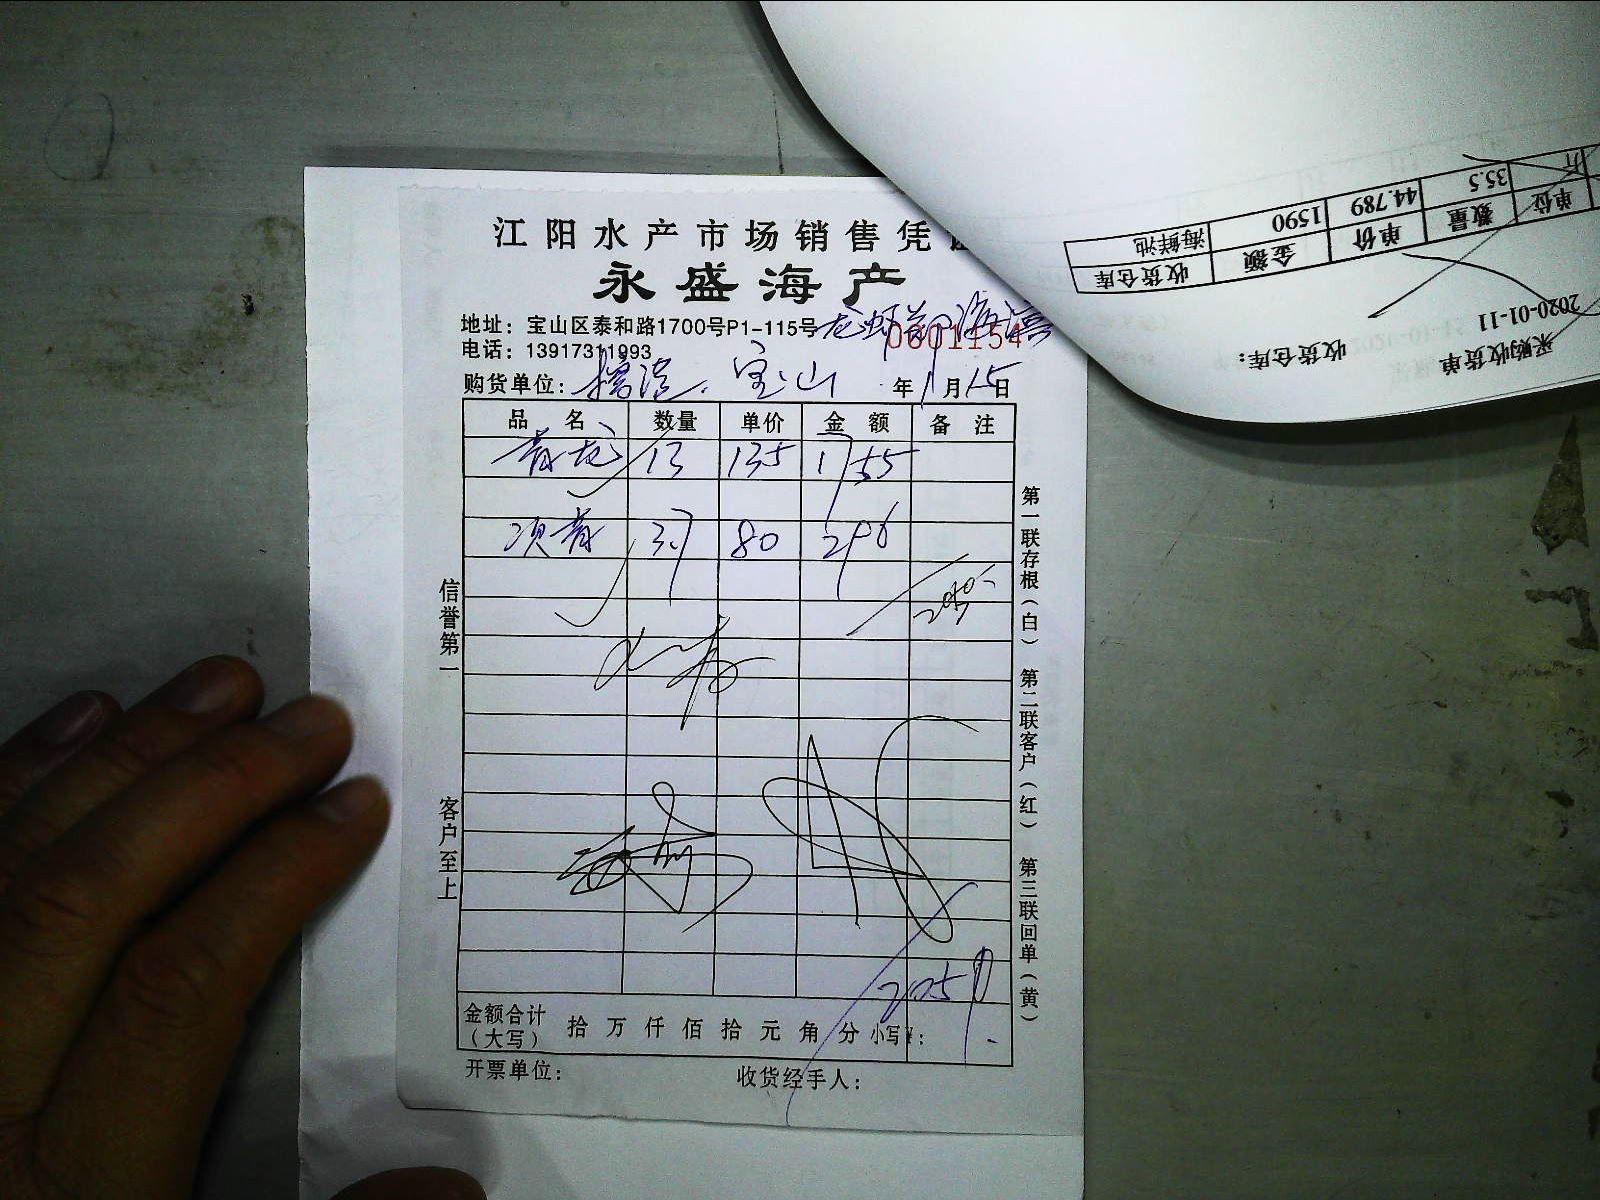 江阳水产市场销售凭
永盛海产
地址：宝山区泰和路1700号P1-115号
0601154
电话：13917311993
购货单位： 宝山 年1月15日
品名 数量 单价 金额 备注
青龙 13 135 1755
次青 3.7 80 296
2050-
2050
金额合计（大写） 拾万仟佰拾元角分 小写¥：
开票单位： 收货经手人：
信誉第一 客户至上
第一联存根（白） 第二联客户（红） 第三联回单（黄）
采购收货单
2020-01-11
收货仓库：
单位 数量 单价 金额 收货仓库
斤 35.5 44.789 1590 海鲜池